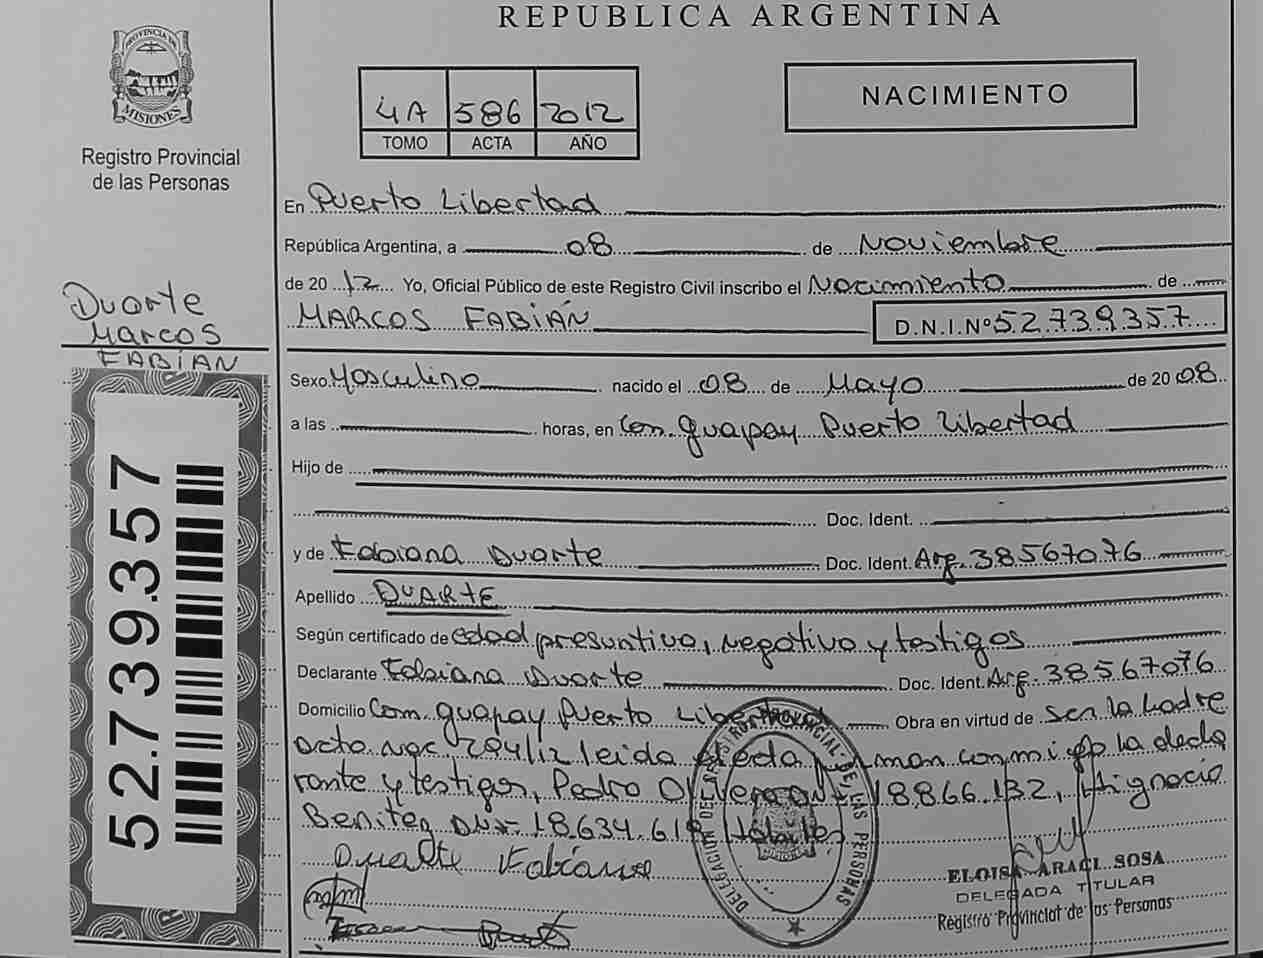 REPUBLICA ARGENTINA
PROVINCIA DE
MISIONES
Registro Provincial
de las Personas
4A 586 2012
TOMO ACTA AÑO
NACIMIENTO
En Puerto Libertad
República Argentina, a 08 de Noviembre
de 20 12 Yo, Oficial Público de este Registro Civil inscribo el Nacimiento de
MARCOS FABIÁN D.N.I.Nº 52.739.357
Duarte
Marcos
FABIAN
Sexo Masculino nacido el 08 de Mayo de 20 08
a las horas, en Com. guapay Puerto Libertad
Hijo de
Doc. Ident.
y de Fabiana Duarte Doc. Ident. Arg. 38567076
Apellido DUARTE
Según certificado de edad presuntiva, negativo y testigos
Declarante Fabiana Duarte Doc. Ident. Arg. 38567076
Domicilio Com. guapay Puerto Libertad Obra en virtud de ser la Madre
leida el acta firman conmigo la decla
rante y testigos, Pedro 18.866.132,
Benitez 18.634.618
Duarte Fabiana
52.739.357
DELEGACION DEL REGISTRO PROVINCIAL DE LAS PERSONAS
ELOISA ARACI SOSA
DELEGADA TITULAR
Registro Provincial de las Personas